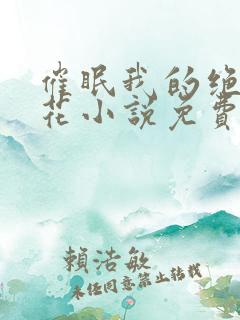 催眠我的绝
花小说免費
賴浩敏
未经同意禁止转载